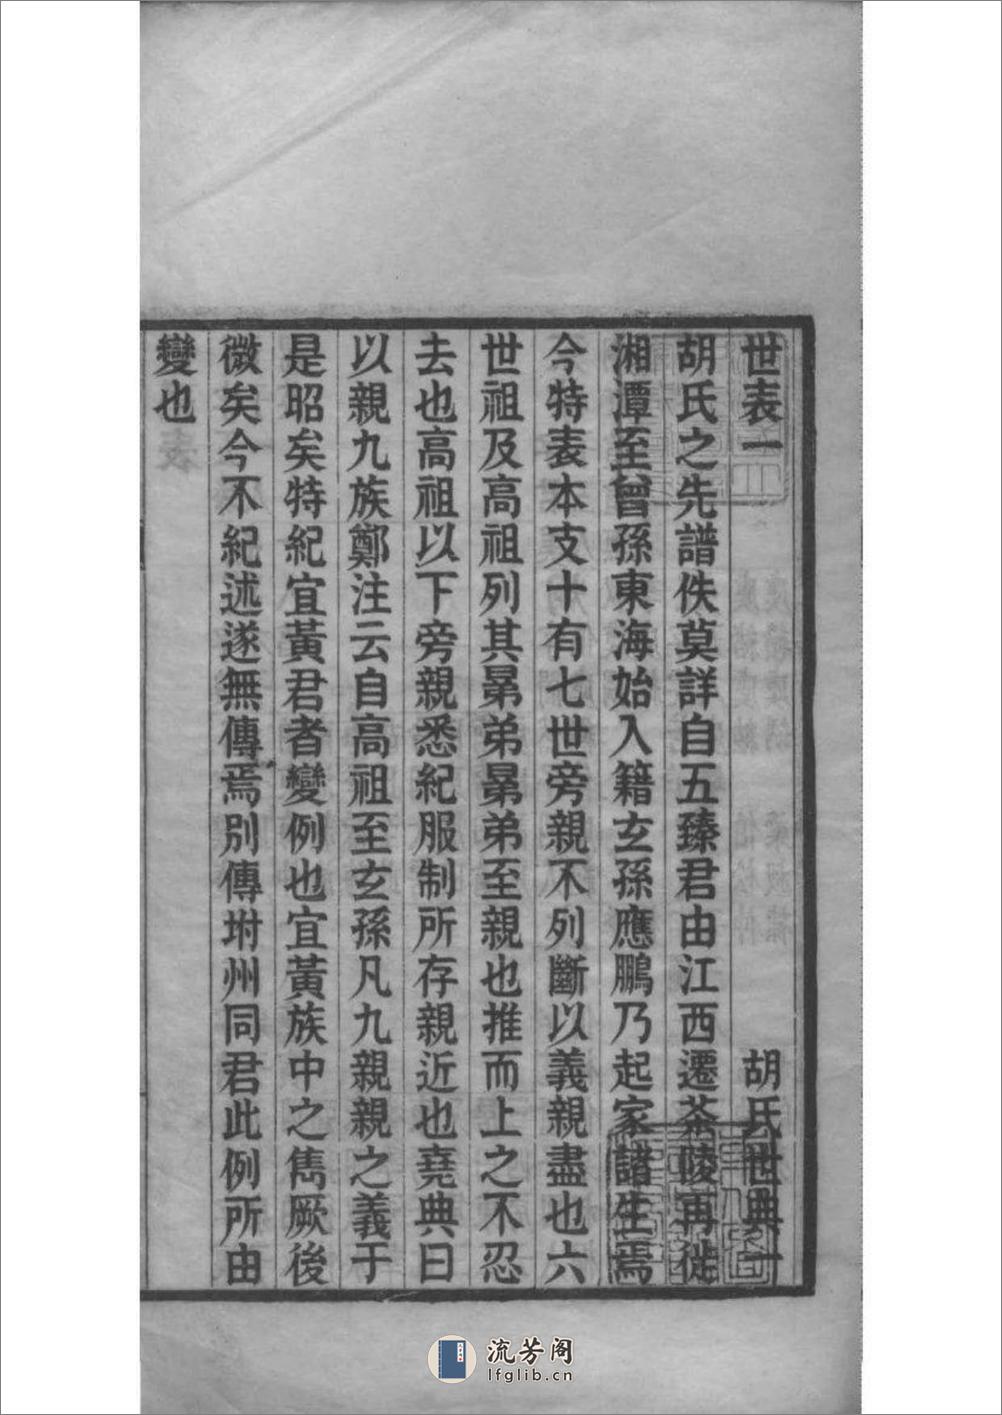 世表一　胡氏世典一
胡氏之先譜佚莫詳自五臻君由江西遷茶陵再徙
湘潭至曾孫東海始入籍玄孫應鵬乃起家諸生焉
今特表本支十有七世旁親不列斷以義親盡也六
世祖及高祖列其晜弟晜弟至親也推而上之不忍
去也高祖以下旁親悉紀服制所存親近也堯典曰
以親九族鄭注云自高祖至玄孫凡九親親之義于
是昭矣特紀宜黃君者變例也宜黃族中之雋厥後
微矣今不紀述遂無傳焉別傳坿州同君此例所由
變也
流芳阁
lfglib.cn